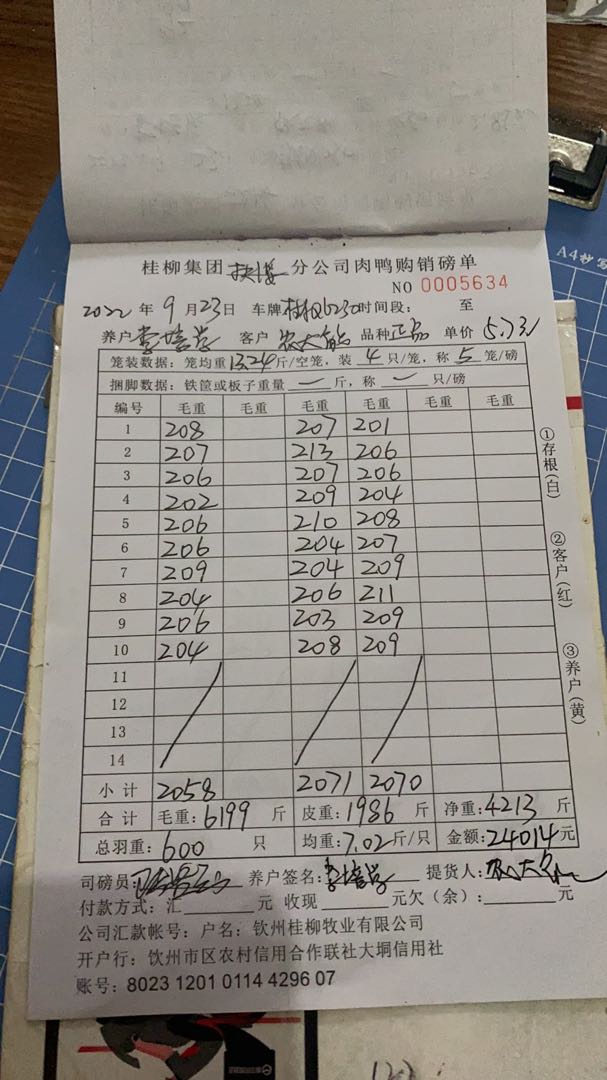 桂柳集团 扶绥 分公司肉鸭购销磅单
NO 0005634
2022 年 9 月 23 日 车牌 桂 时间段: 至
养户 李培 客户 农大 品种 正品 单价 5.7元
笼装数据: 笼均重 13.24 斤/空笼, 装 4 只/笼, 称 5 笼/磅
捆脚数据: 铁筐或板子重量 — 斤, 称 — 只/磅
编号 毛重 毛重 毛重 毛重 毛重 毛重
1 208 207 201
2 207 213 206
3 206 207 206
4 202 209 204
5 206 210 208
6 206 204 207
7 209 204 209
8 204 206 211
9 206 203 209
10 204 208 209
11
12
13
14
小计 2058 2071 2070
合计 毛重: 6199 斤 皮重: 1986 斤 净重: 4213 斤
总羽重: 600 只 均重: 7.02 斤/只 金额: 24014 元
司磅员: 养户签名: 李培 提货人: 农大
付款方式: 汇 元 收现 元欠(余): 元
公司汇款帐号: 户名: 钦州桂柳牧业有限公司
开户行: 饮州市区农村信用合作联社大垌信用社
账号: 8023 1201 0114 4296 07
①存根(白)
②客户(红)
③养户(黄)
A4